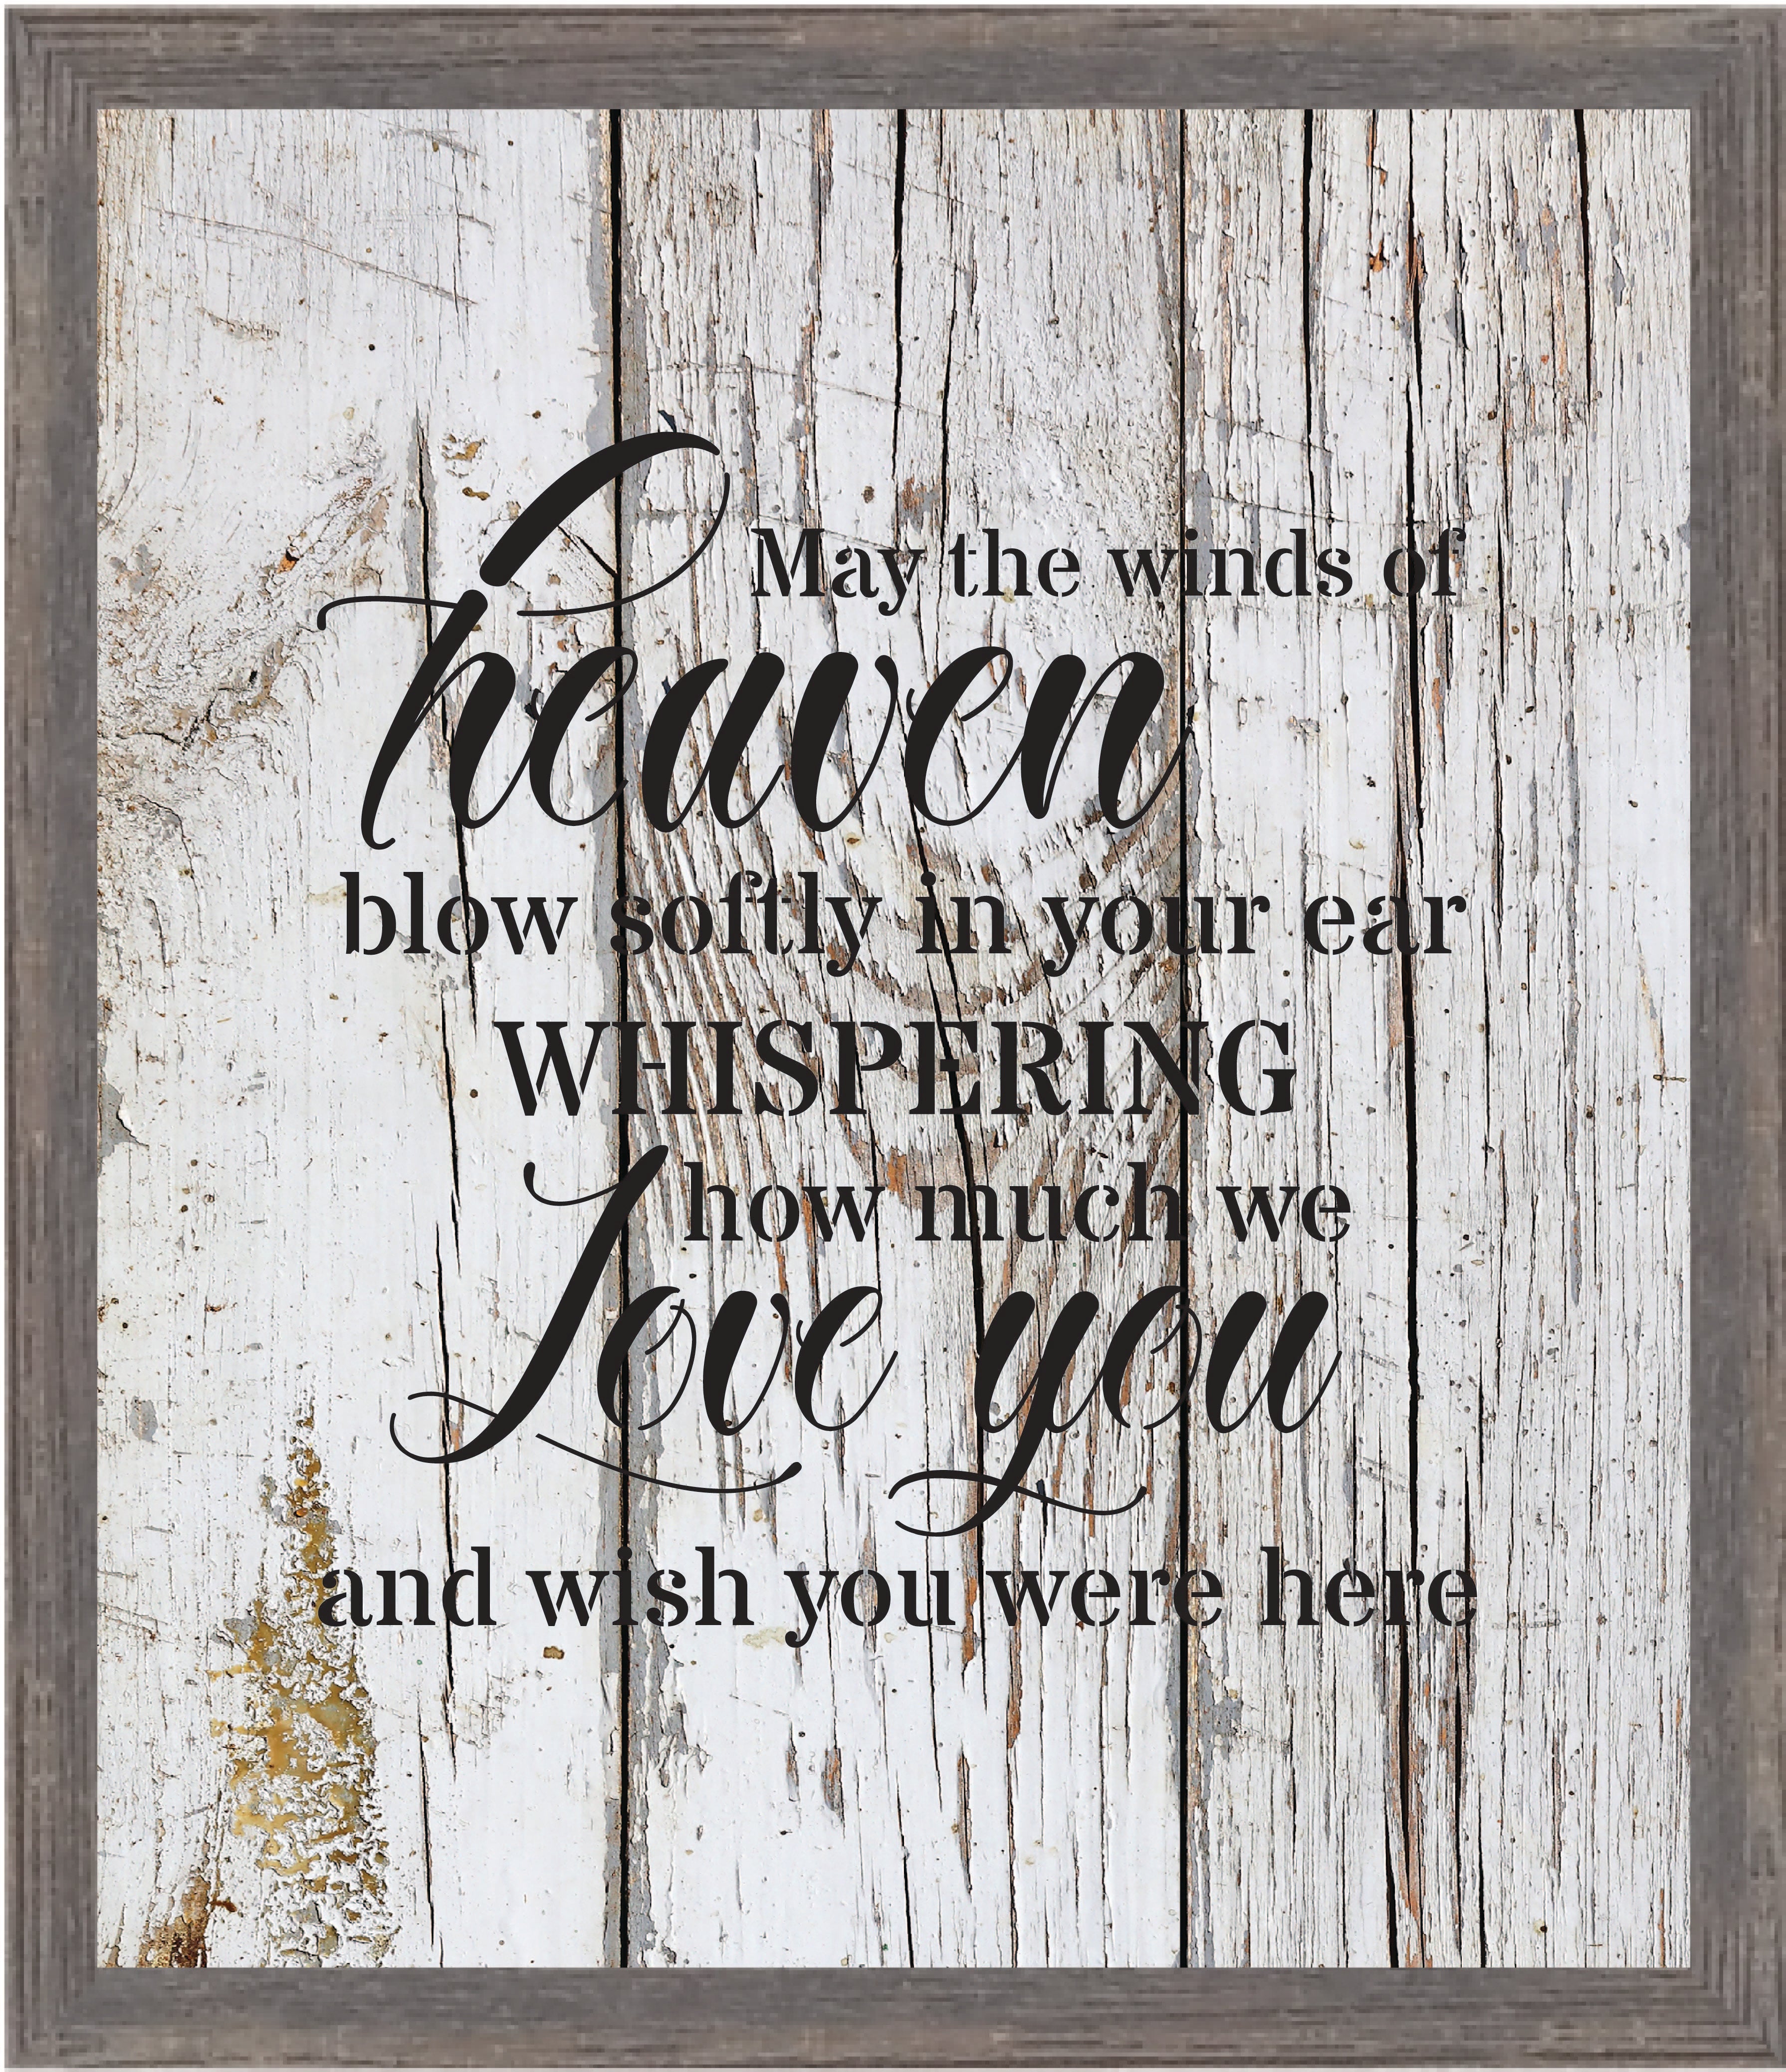 May the winds of
heaven
blow softly in your ear
WHISPERING
how much we
Love you
and wish you were here